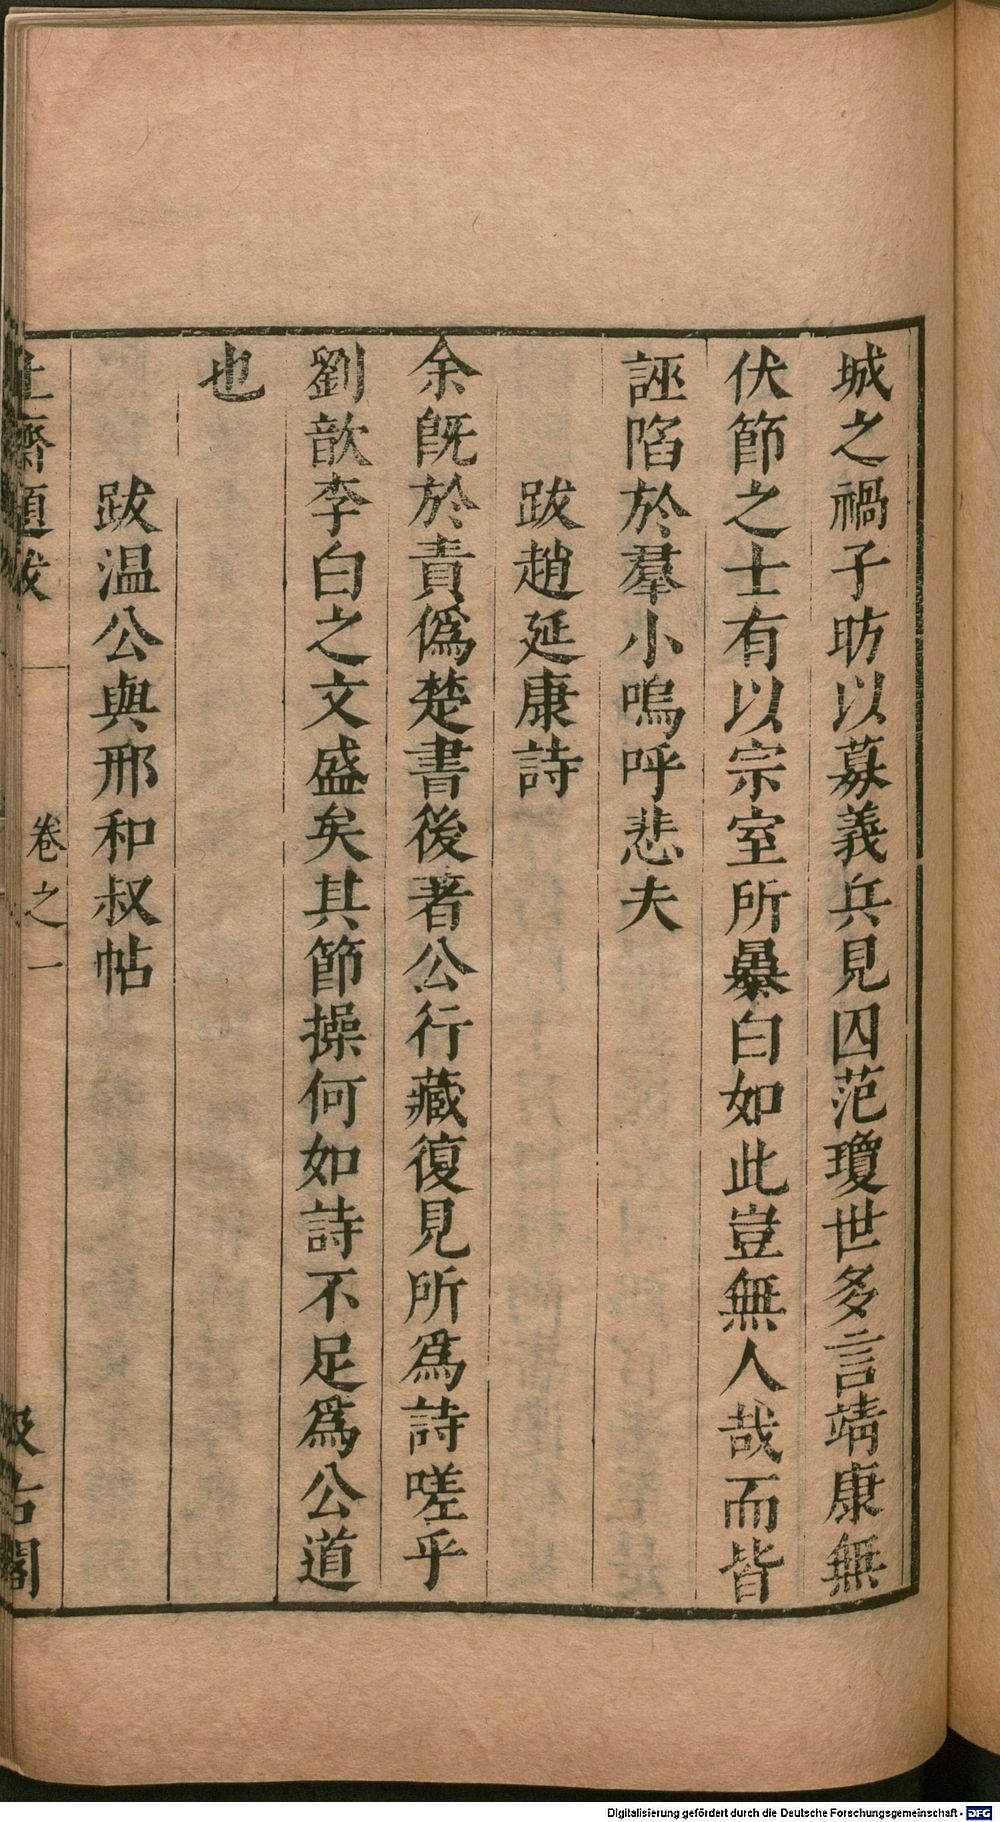 城之禍子昉以募義兵見囚范瓊世多言靖康無
伏節之士有以宗室所暴白如此豈無人哉而皆
誣陷於羣小嗚呼悲夫
跋趙延康詩
余旣於責僞楚書後著公行藏復見所爲詩嗟乎
劉歆李白之文盛矣其節操何如詩不足爲公道
也
跋温公與邢和叔帖
齋題跋
卷之一
汲古閣
Digitalisierung gefördert durch die Deutsche Forschungsgemeinschaft - DFG